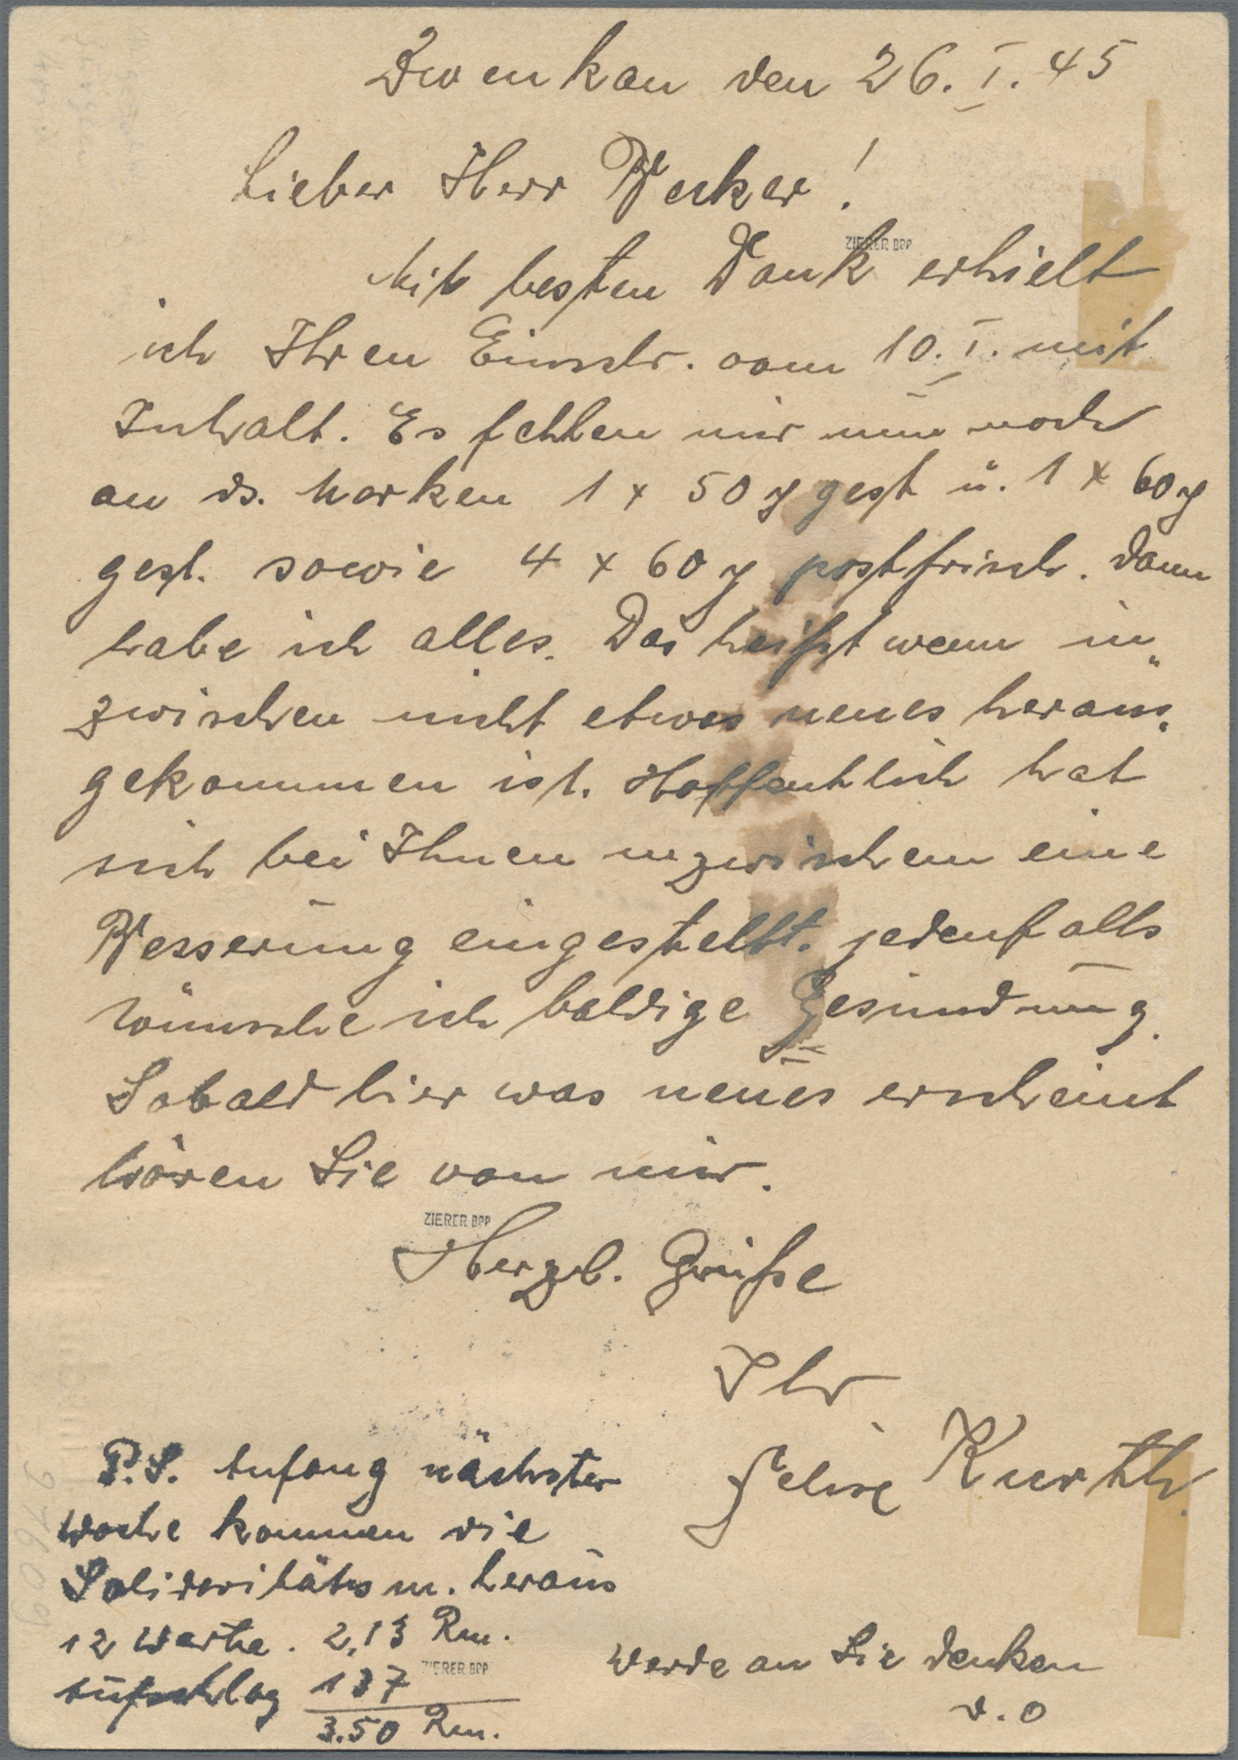 Zwenkau den 26. I. 45
Lieber Herr Becker!
ZIERER BPP
Mit besten Dank erhielt
ich Ihren Einschr. vom 10. I. mit
Inhalt. Es fehlen mir nun noch
an ds. Marken 1 x 50 ₰ gest u. 1 x 60 ₰
gest. sowie 4 x 60 ₰ postfrisch. Dann
habe ich alles. Das heißt wenn in„
zwischen nicht etwas neues heraus„
gekommen ist. Hoffentlich hat
sich bei Ihnen inzwischem eine
Besserung eingestellt. jedenfalls
wünsche ich baldige Gesundung.
Sobald hier was neues erscheint
hören Sie von mir.
ZIERER BPP
Herzl. Grüße
Ihr
Felix Kurth
P.S. Anfang nächster
Woche kommen die
Solidaritäts m. heraus
12 Werte. 2,13 Rm.
ZIERER BPP
Aufschlag 137
3.50 Rm.
Werde an Sie denken
d. O